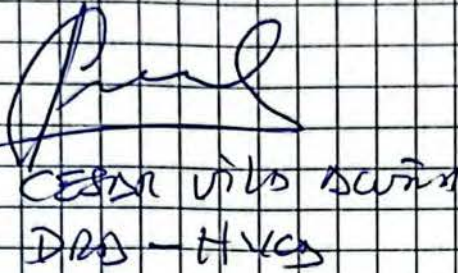 CESAR VILA ACUÑA
DRA - HVCA